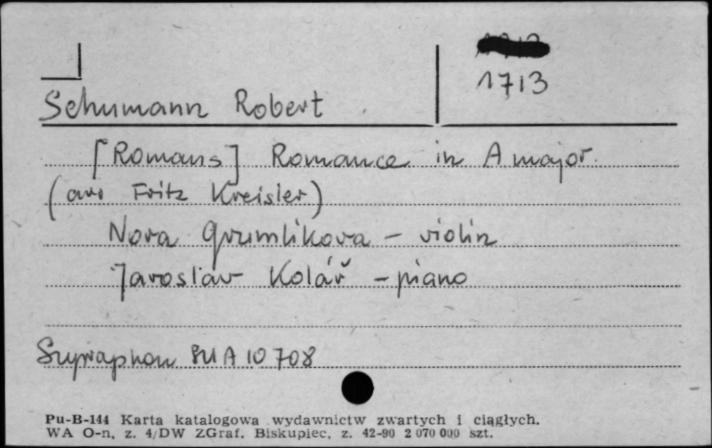 1713
Schumann Robert
[Romans] Romance in A major.
(arr Fritz Kreisler)
Nora Grumlikova - violin
Jaroslav Kolář - piano
Supraphon SUA 10708
Pu-B-144 Karta katalogowa wydawnictw zwartych i ciągłych.
WA O-n, z. 4/DW ZGraf. Biskupiec, z. 42-90 2 070 000 szt.